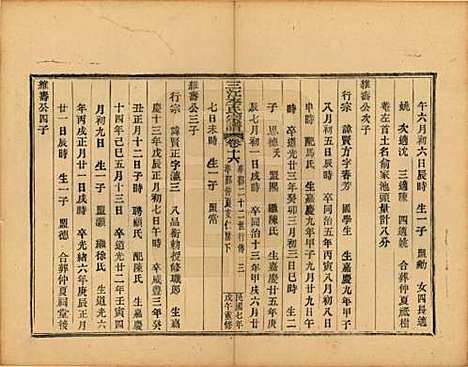 午六月初六日辰時 生一子 盟勳 女四長適
姚 次適沈 三適陳 四適姚 合葬仲夏祗樹
菴左首土名俞家池頭量計八分
維壽公次子
行宗 諱賢芳字春芳 國學生 生嘉慶九年甲子九月廿九日午
八月初五日辰時 卒同治五年丙寅八月初十日
申時 配馬氏 生嘉慶九年甲子九月廿九日午
時 卒道光廿三年癸卯三月初三日巳時 生二
子 恩德夭 盟陽 繼陳氏 生嘉慶廿五年庚
辰七月初一日戌時 卒同治十三年甲戌八月廿
三江李氏宗譜 卷十六
民國七年
戊午重修
七日未時 生一子 盟常
維壽公三子
行宗 諱賢正字瀛三 八品銜賴授修職郎 生嘉
慶十三年戊辰正月初七日午時 卒咸豐三年癸
丑正月十二日子時 聘顧氏 配陳氏 生嘉慶
十四年己巳五月十三日 卒道光廿二年壬寅四
月初九日 生一子 盟德 繼徐氏 生道光六
年丙戌正月廿一日戌時 卒光緒六年庚辰正月
廿一日辰時 生一子 盟德 合葬仲夏祠堂後
維壽公四子